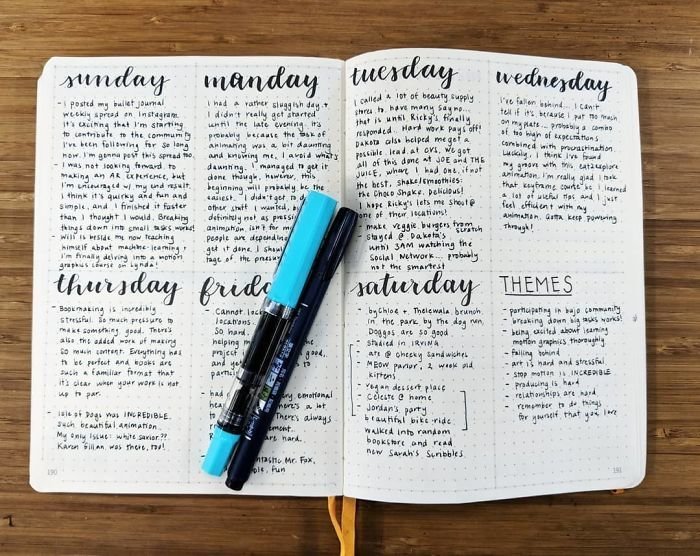 sunday
- I posted my bullet journal
weekly spread on Instagram.
It's exciting that I'm starting
to contribute to the community
I've been following for so long
now. I'm gonna post this spread too.
- I was not looking forward to
making an AR experience, but
I'm encouraged w/ my end result.
I think it's quirky and fun and
simple, and I finished it faster
than I thought I would. Breaking
things down into small tasks works!
- Will is beside me now teaching
himself about machine-learning +
I'm finally delving into a motion
graphics course on Lynda!
monday
I had a rather sluggish day +
I didn't really get started
until the late evening. It's
probably because the task of
animating was a bit daunting
and knowing me, I avoid what's
daunting. I managed to get it
done though, however, this
beginning will probably be the
easiest. I didn't get to d
other stuff I wanted, b
definitely not as press
animation isn't for m
people are dependin
get it done. I shou
tage of the pressur
tuesday
I called a lot of beauty supply
stores to have many say no...
that is until Ricky's finally
responded. Hard work pays off!
Dakota also helped me get a
possible lead at CVS. We got
all of this done at JOE AND THE
JUICE, where I had one, if not
the best, shake/smoothies:
the Choco Shake. Delicious!
I hope Ricky's lets me shoot @
one of their locations!
- make veggie burgers from
scratch
stayed @ Dakota's
until 3AM watching the
Social Network... probably
not the smartest
wednesday
I've fallen behind... I can't
tell if it's because I put too much
on my plate... probably a combo
of too high of expectations
combined with procrastination.
Luckily, I think I've found
my groove with this eat2explore
animation. I'm really glad I took
that keyframe course bc I learned
a lot of useful tips and I just
feel efficient with my
animation. Gotta keep powering
through!
thursday
- Bookmaking is incredibly
stressful. So much pressure to
make something good. There's
also the added work of making
so much content. Everything has
to be perfect and books are
such a familiar format that
it's clear when your work is not
up to par.
- Isle of Dogs was INCREDIBLE.
Such beautiful animation.
My only issue: white savior??
Karen Gillan was there, too!
frid
- Cannot lock
locations.
So hard.
helping m
the project
good,
and yet
partici
- had
emotional
hear
There's a lot
There's always
ement.
are hard.
ntastic Mr. Fox,
ple, fun
saturday
- by Chloe + Thelewala brunch
in the park by the dog run.
Doggos are so good
- studied in IRVING
- ate @ cheeky sandwiches
- MEOW parlor, 2 week old
kittens
- vegan dessert place
- Celeste @ home
- Jordan's party
- beautiful bike ride
- walked into random
bookstore and read
new Sarah's Scribbles.
THEMES
- participating in bujo community
- breaking down big tasks works!
- being excited about learning
motion graphics thoroughly
- falling behind
- art is hard and stressful
- stop motion is INCREDIBLE
- producing is hard
- relationships are hard
- remember to do things
for yourself that you love
190
191